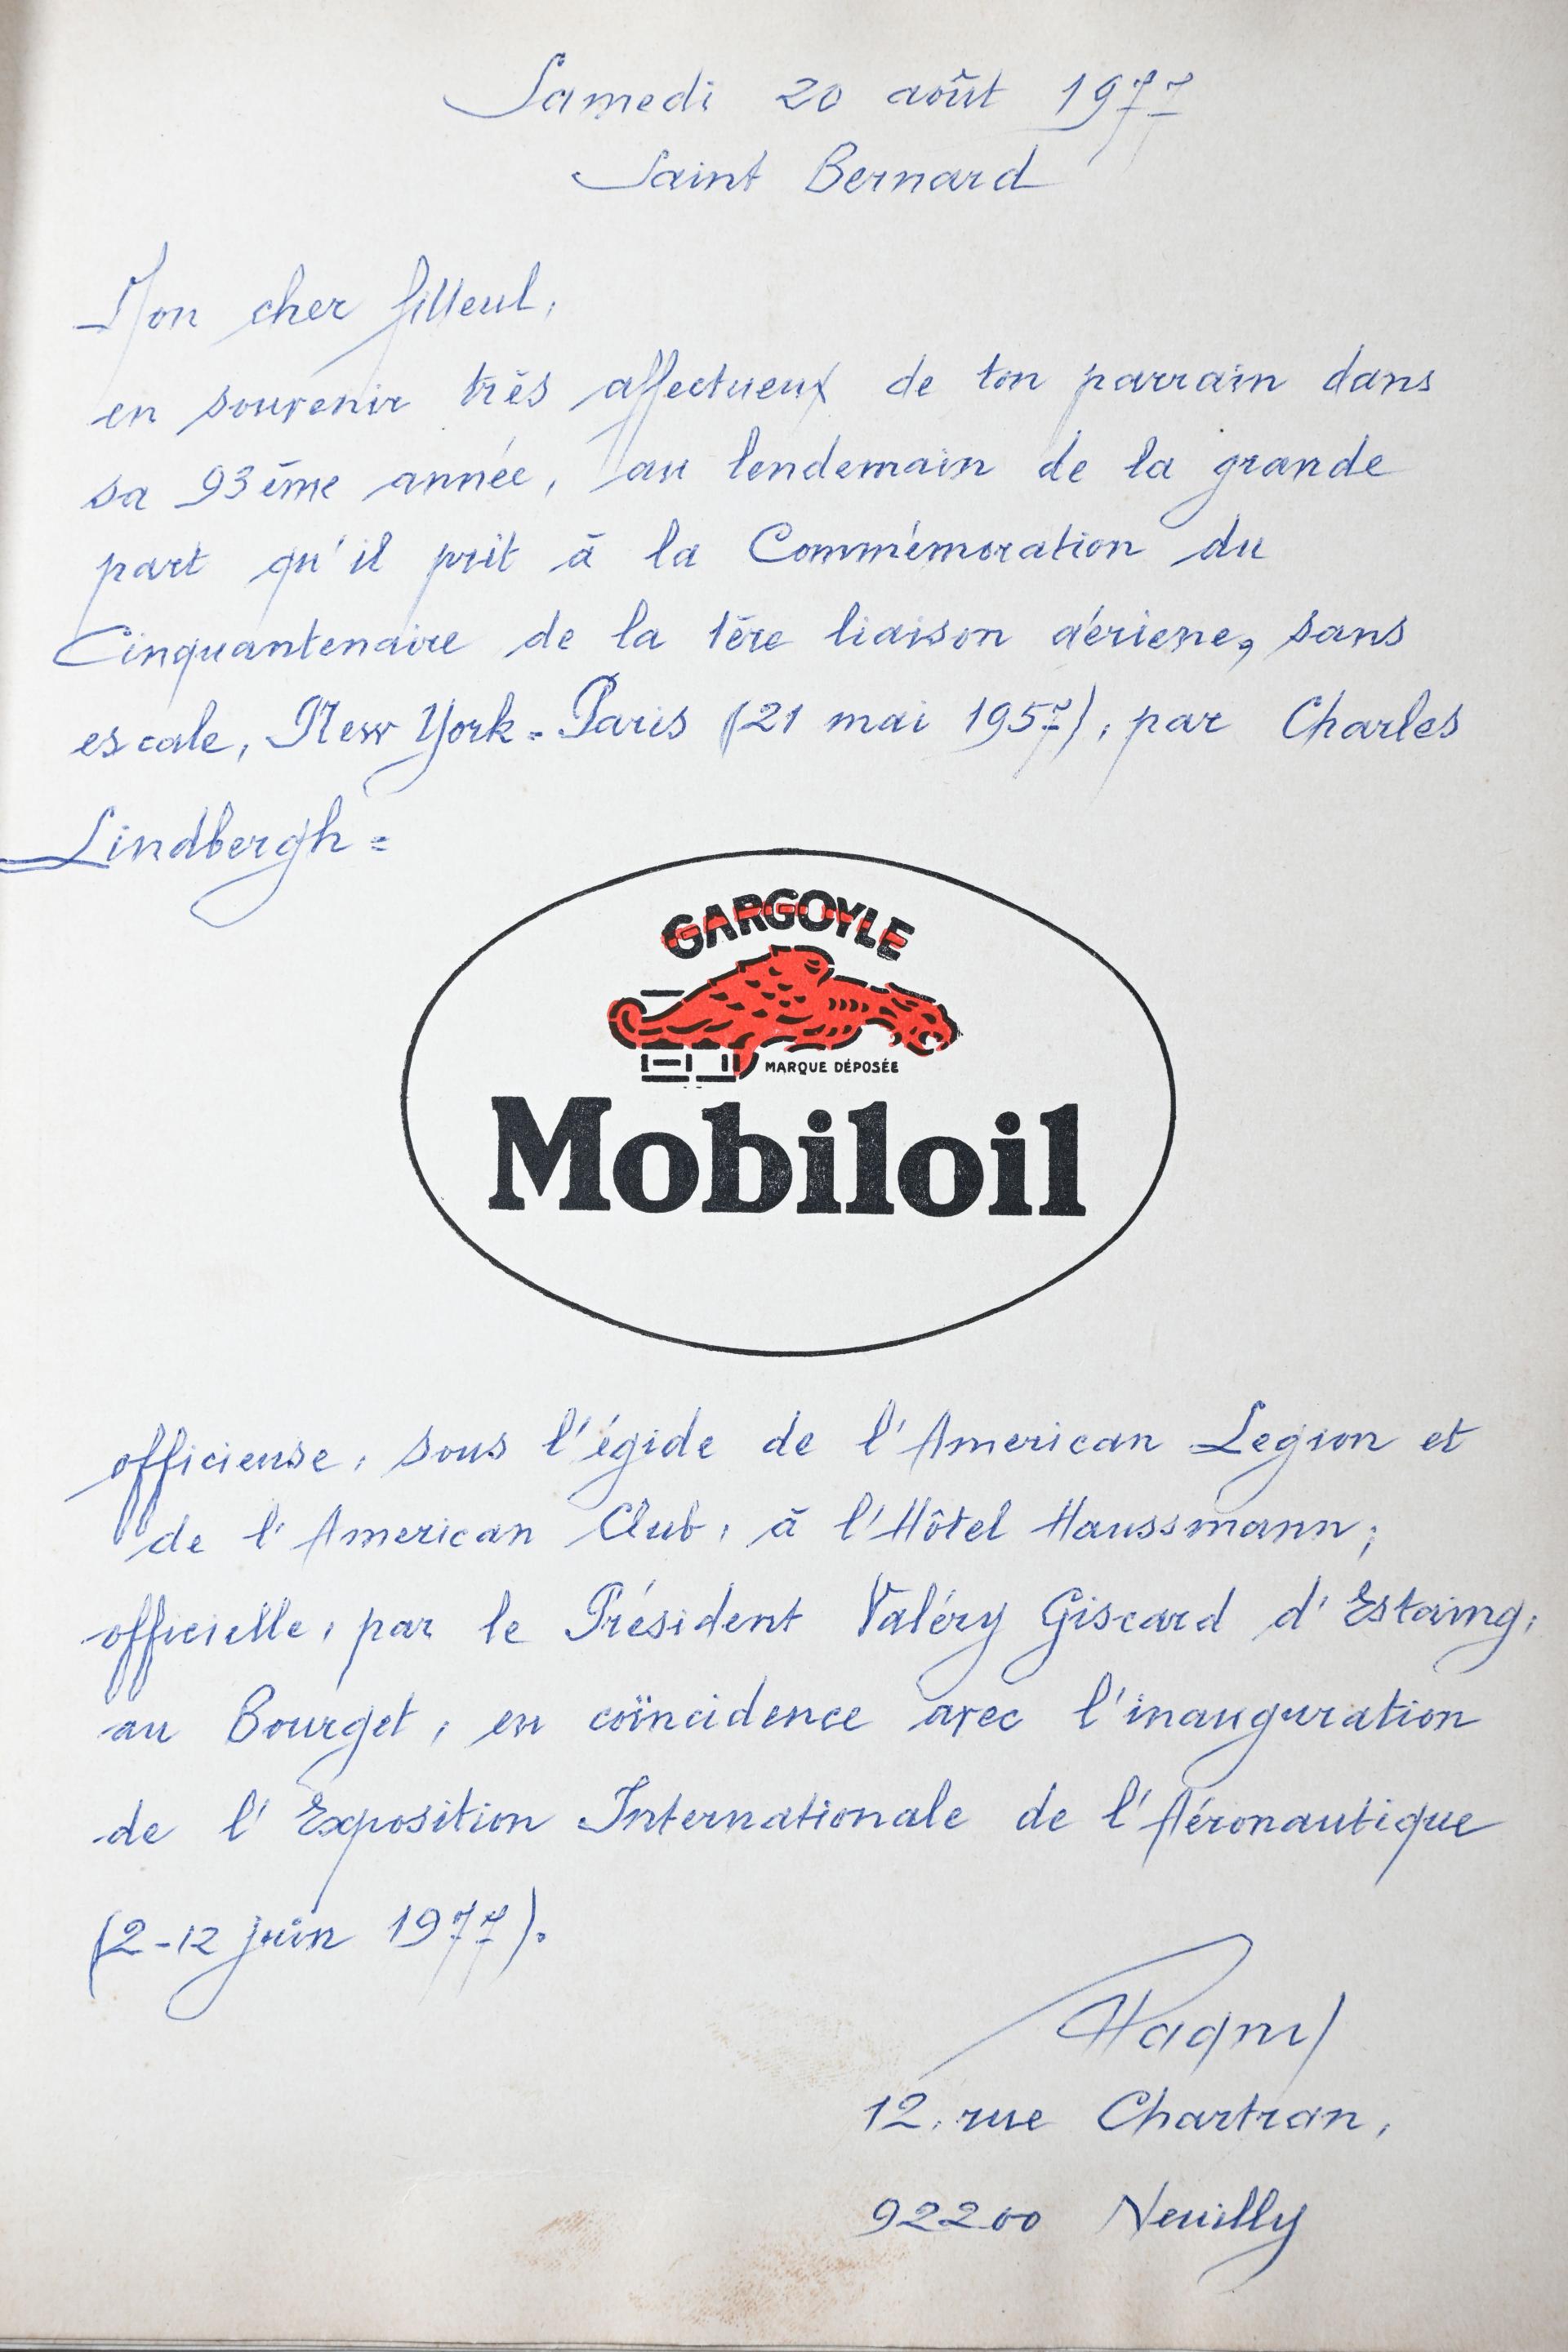 Samedi 20 août 1977
Saint Bernard
Mon cher filleul,
en souvenir très affectueux de ton parrain dans
sa 93ème année, au lendemain de la grande
part qu'il prit à la Commémoration du
Cinquantenaire de la 1ère liaison aériene, sans
escale, New York - Paris (21 mai 1957), par Charles
Lindbergh =
GARGOYLE
MARQUE DÉPOSÉE
Mobiloil
officieuse, sous l'égide de l'American Legion et
de l'American Club, à l'Hôtel Haussmann;
officielle, par le Président Valéry Giscard d'Estaing,
au Bourget, en coïncidence avec l'inauguration
de l'Exposition Internationale de l'Aéronautique
(2-12 juin 1977).
12, rue Chartran,
92200 Neuilly